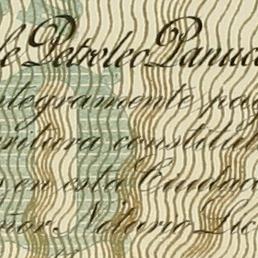 de Petroleo Panuco
integramente pag
critura constitut
s en esta Ciudad
eñor Notario Lic